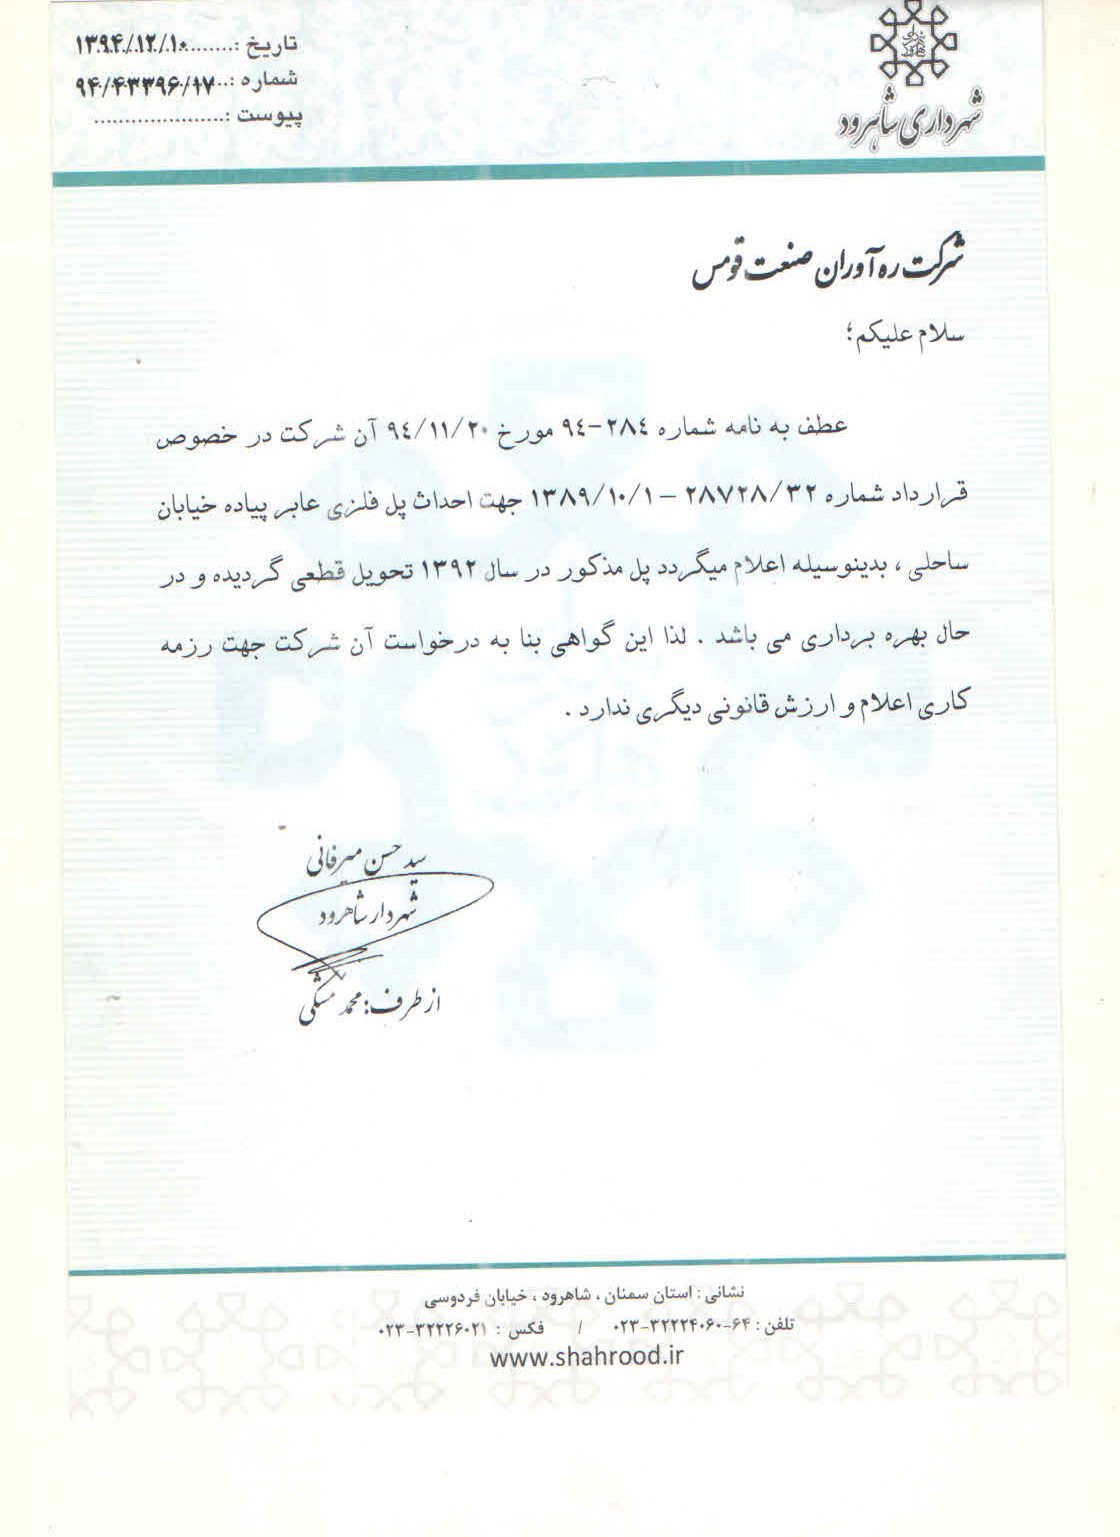 شهرداری شاهرود
تاریخ :.......۱۳۹۴/۱۲/۱۰
شماره :...۹۴/۴۳۳۹۶/۱۷
پیوست :......................
شرکت ره آوران صنعت قومس
سلام علیکم؛
عطف به نامه شماره ۲۸٤-۹٤ مورخ ۹٤/۱۱/۲۰ آن شرکت در خصوص
قرارداد شماره ۲۸۷۲۸/۳۲ – ۱۳۸۹/۱۰/۱ جهت احداث پل فلزی عابر پیاده خیابان
ساحلی ، بدینوسیله اعلام میگردد پل مذکور در سال ۱۳۹۲ تحویل قطعی گردیده و در
حال بهره برداری می باشد . لذا این گواهی بنا به درخواست آن شرکت جهت رزمه
کاری اعلام و ارزش قانونی دیگری ندارد .
سید حسن میرفانی
شهردار شاهرود
از طرف: محمد مشکی
نشانی : استان سمنان ، شاهرود ، خیابان فردوسی
تلفن : ۶۴-۰۲۳-۳۲۲۲۴۰۶۰ / فکس : ۰۲۳-۳۲۲۲۶۰۲۱
www.shahrood.ir